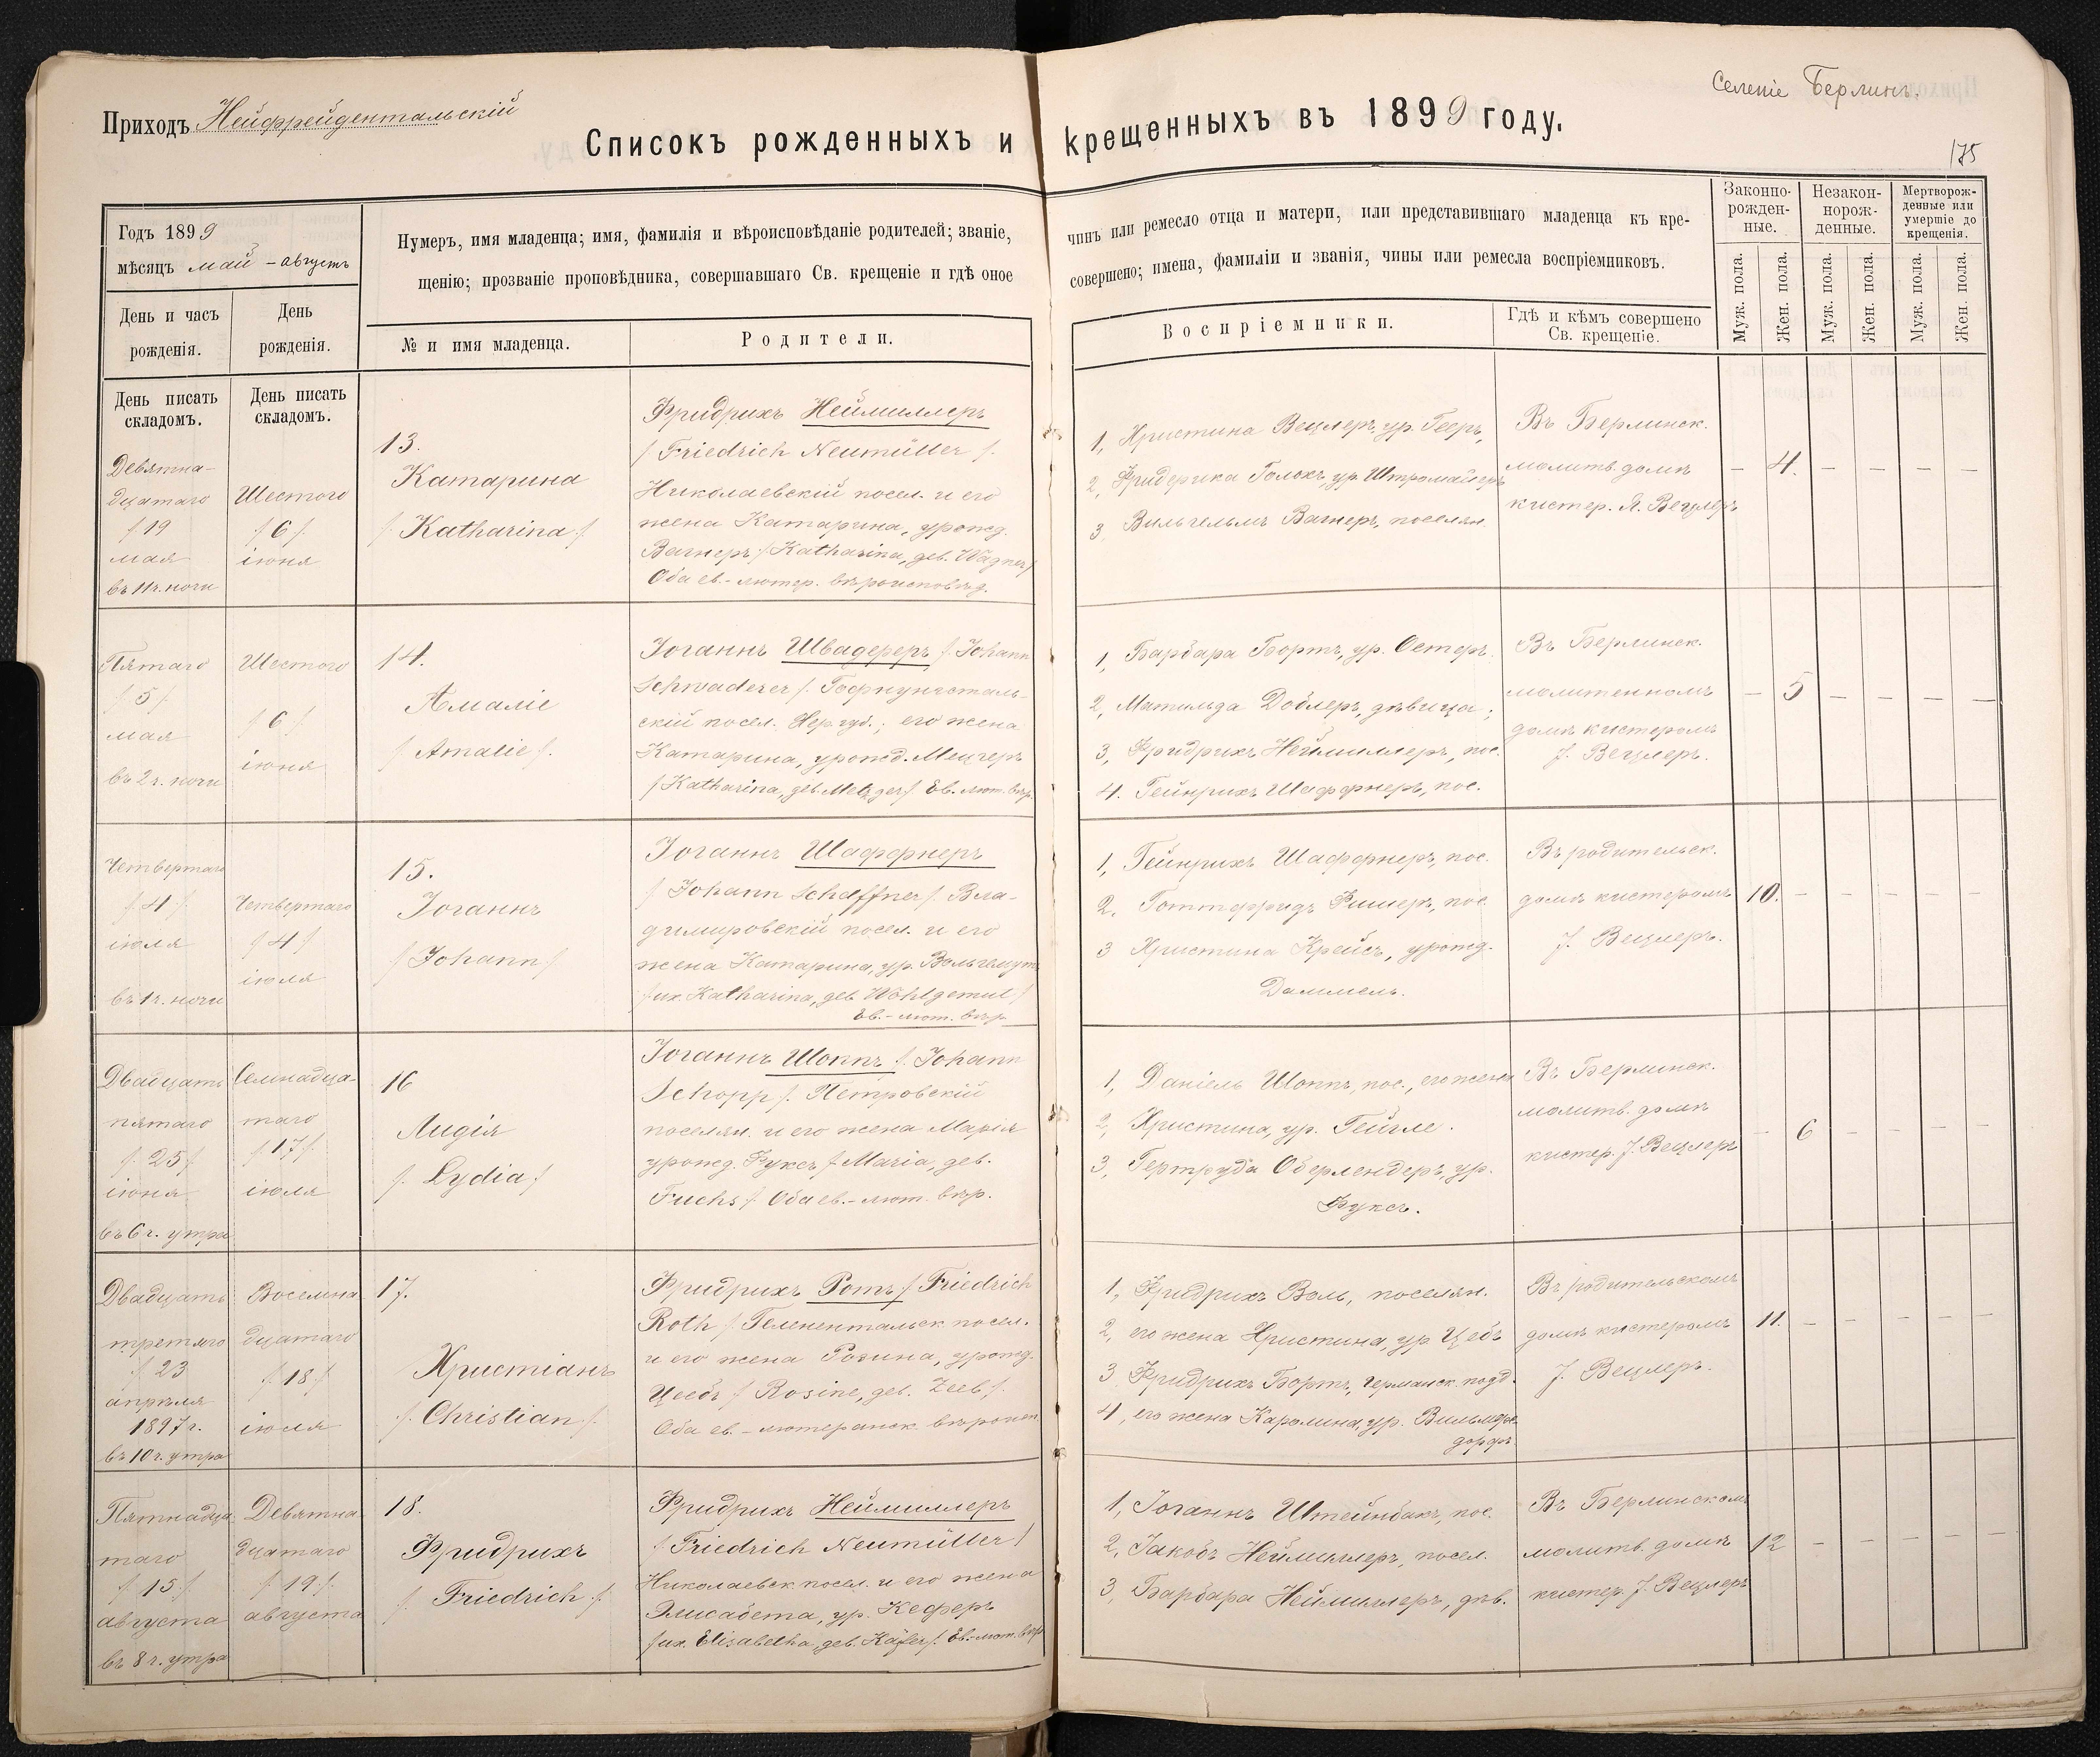 Селеніе Берлинъ.
Приходъ Нейфрейдентальскій
Списокъ рожденныхъ и крещенныхъ въ 1899 году.
175
Годъ 1899
мѣсяцъ май - августъ
Нумеръ, имя младенца; имя, фамилія и вѣроисповѣданіе родителей; званіе, чинъ или ремесло отца и матери, или представившаго младенца къ кре-
щенію; прозваніе проповѣдника, совершавшаго Св. крещеніе и гдѣ оное совершено; имена, фамиліи и званія, чины или ремесла воспріемниковъ.
Законно-
рожден-
ные.
Незакон-
норож-
денные.
Мертворож-
денные или
умершіе до
крещенія.
День и часъ
рожденія.
День
рожденія.
№ и имя младенца.
Родители.
Воспріемники.
Гдѣ и кѣмъ совершено
Св. крещеніе.
Муж. пола.
Жен. пола.
Муж. пола.
Жен. пола.
Муж. пола.
Жен. пола.
День писать
складомъ.
День писать
складомъ.
Девятна-
дцатаго
/19
мая
въ 11 ч. ночи
Шестого
/6/.
іюня
13.
Катарина
/. Katharina /.
Фридрихъ Неймиллеръ
/ Friedrich Neumüller /.
Николаевскій посел. и его
жена Катарина, урожд.
Вагнеръ /. Katharina, geb. Wagner/
Оба ев.-лютер. вѣроисповѣд.
1, Христина Вецлеръ, ур. Гееръ,
2, Фридерика Голохъ, ур. Штромайеръ
3, Вильгельмъ Вагнеръ, поселян.
Въ Берлинск.
молитв. домѣ
кистер. Я. Вецлеръ
– 4. – – – –
Пятаго
/5/.
мая
въ 2 ч. ночи
Шестого
/6/
іюня
14.
Амаліе
/. Amalie /.
Іоганнъ Швадереръ /. Johann
Schwaderer /. Гофнунгсталь-
скій посел. Хер. губ.; его жена
Катарина, урожд. Мецгеръ
/Katharina, geb. Metzger/. Ев. лют. вѣр.
1, Барбара Бортъ, ур. Остеръ.
2, Матильда Доблеръ, дѣвица;
3, Фридрихъ Неймиллеръ, пос.
4. Гейнрихъ Шаффнеръ, пос.
Въ Берлинск.
молитенномъ
домѣ кистеромъ
J. Вецлеръ.
– 5 – – – –
Четвертаго
/. 4 /.
іюля
въ 1 ч. ночи
Четвертаго
/ 4 /
іюля
15.
Іоганнъ
/ Johann /
Іоганнъ Шаффнеръ
/ Johann Schaffner /. Вла-
димировскій посел. и его
жена Катарина, ур. Вольгемутъ
/ux. Katharina, geb. Wohlgemut /
Ев.-лют. вѣр.
1, Гейнрихъ Шаффнеръ, пос.
2, Готтфридъ Фишеръ, пос.
3 Христина Крейсъ, урожд.
Даммель.
Въ родительск.
домѣ кистеромъ
J. Вецлеръ.
10. – – – – –
Двадцать
пятаго
/. 25 /.
іюня
въ 6 ч. утра
Семнадца-
таго
/. 17 /.
іюля
16
Лидія
/. Lydia /
Іоганнъ Шоппъ /. Johann
Schopp /. Петровскій
поселян. и его жена Марія
урожд. Фуксъ /. Maria, geb.
Fuchs /. Оба ев.-лют. вѣр.
1, Даніель Шоппъ, пос., его жена
2, Христина, ур. Гейгле.
3, Гертруда Оберлендеръ, ур.
Фуксъ.
Въ Берлинск.
молитв. домѣ
кистер. J. Вецлеръ
– 6 – – – –
Двадцать
третьяго
/. 23
апрѣля
1897 г.
въ 10 ч. утра
Восемна-
дцатаго
/. 18 /.
іюля
17.
Христіанъ
/. Christian /.
Фридрихъ Ротъ /. Friedrich
Roth /. Гелененталъск посел.
и его жена Розина, урожд.
Цеебъ / Rosine, geb. Zeeb /.
Оба ев.-лютеранск. вѣроисп.
1, Фридрихъ Воль, поселян.
2, его жена Христина, ур. Цебъ
3 Фридрихъ Бортъ, германск. подд.
4, его жена Каролина, ур. Вильмсъ-
дорфъ
Въ родительскомъ
домѣ кистеромъ
J. Вецлеръ.
11. – – – – –
Пятнадца-
таго
/. 15 /.
августа
въ 8 ч. утра
Девятна-
дцатаго
/. 19 /.
августа
18.
Фридрихъ
/. Friedrich /.
Фридрихъ Неймиллеръ
/. Friedrich Neumüller /
Николаевск посел. и его жена
Элисабета, ур. Кеферъ
/ux. Elisabetha, geb. Käfer /. Ев.-лют. вѣр.
1, Іоганнъ Штейнбахъ, пос.
2, Іакобъ Неймиллеръ, посел.
3, Барбара Неймиллеръ, дѣв.
Въ Берлинскомъ
молитв. домѣ
кистер. J. Вецлеръ
12 – – – – –